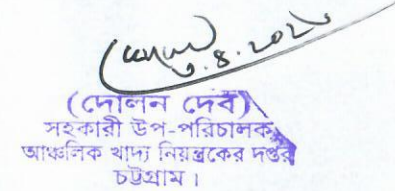 ৩.৪.২০২১
(দোলন দেব)
সহকারী উপ-পরিচালক
আঞ্চলিক খাদ্য নিয়ন্ত্রকের দপ্তর
চট্টগ্রাম।